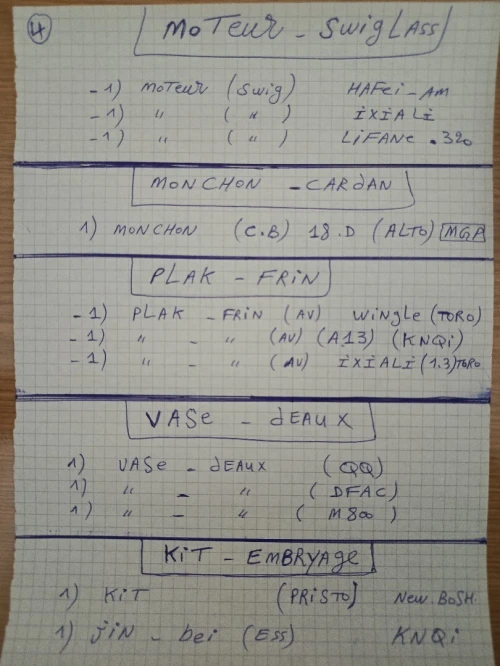 4
MoTeur - SwigLASS
- 1) MoTeur (Swig) HAFei - AM
- 1) " ( " ) İXİALİ
- 1) " ( " ) LiFANe . 320
MONCHON - CARdAN
1) MONCHON (C.B) 18.D (ALTO) MGP
PLAK - FRiN
- 1) PLAK - FRiN (AV) WiNgle (TORO)
- 1) " - " (AV) (A13) (KNQi)
- 1) " - " (AV) İXİALİ (1.3) TORO
VASe - dEAUX
1) VASe - dEAUX (QQ)
1) " - " ( DFAC)
1) " - " ( M800 )
KiT - EMBRYAge
1) KiT (PRiSTO) New. BoSH
1) jiN - bei (ESS) KNQi